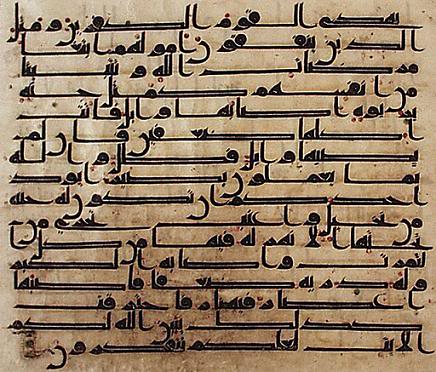 يهدى القوم الكفرين ومثل
الذين ينفقون امولهم ابتغا
مرضات الله وتثبيتا
من انفسهم كمثل جنة
بربوة اصابها وابل فاتت
اكلها ضعفين فان لم
يصبها وابل فطل والله
بما تعملون بصير ايود
احدكم ان تكون له جنة
من نخيل واعنب تجرى من
تحتها الانهر له فيها من كل
الثمرت واصابه الكبر
وله ذرية ضعفا فاصابها
اعصار فيه نار فاحترقت
كذلك يبين الله لكم
الايت لعلكم تتفكرون